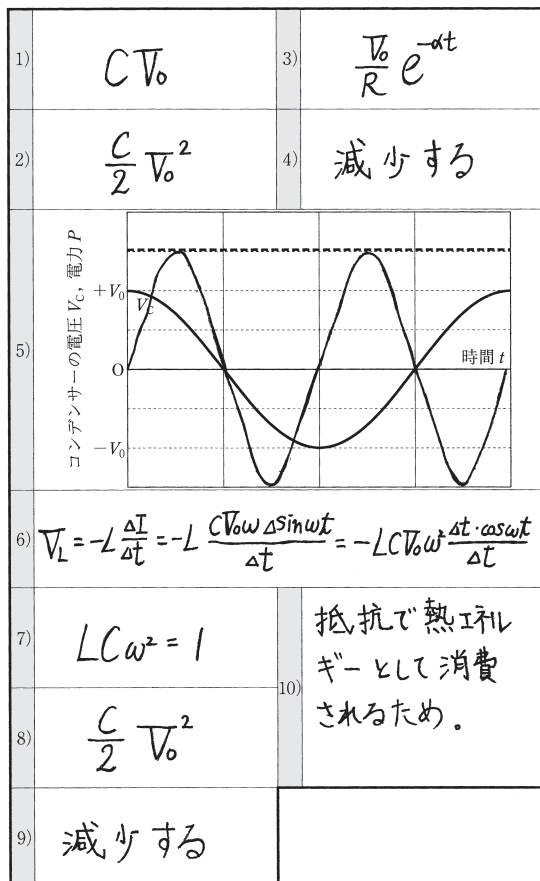 1) CV₀
2) C/2 V₀²
3) V₀/R e^{-αt}
4) 減少する
5)
コンデンサーの電圧 V_C, 電力 P
+V₀
V_C
O
-V₀
時間 t
6) V_L = -L ΔI/Δt = -L CV₀ω Δsinωt/Δt = -LCV₀ω² Δt・cosωt/Δt
7) LCω² = 1
8) C/2 V₀²
9) 減少する
10) 抵抗で熱エネル
ギーとして消費
されるため。